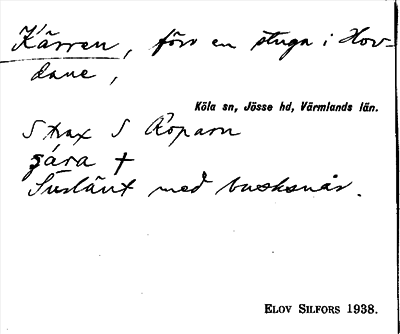 Kärren, förr en stuga i Hov-
dane,
Köla sn, Jösse hd, Värmlands län.
Strax S Roparn
med busksnår.
ELOV SILFORS 1938.